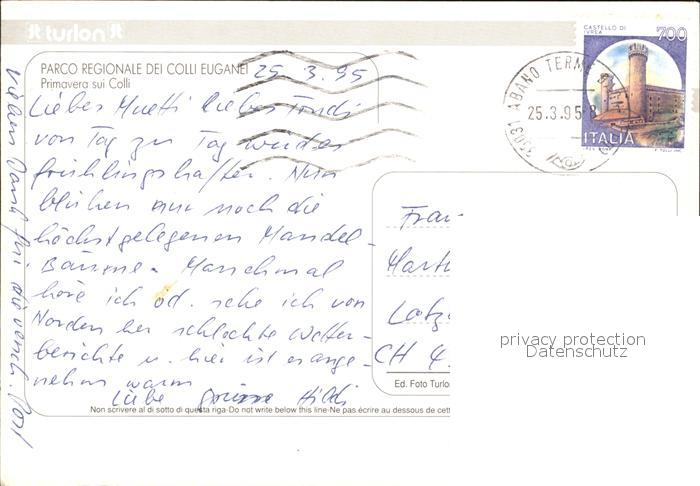 turlon
PARCO REGIONALE DEI COLLI EUGANEI
Primavera sui Colli
25. 3. 95
Liebes Muetti liebes Trudi
von Tag zu Tag wird es
frühlingshafter. Nun
blühen nur noch die
höchstgelegenen Mandel-
Bäume. Manchmal
höre ich od. sehe ich von
Norden her schlechte Wetter-
berichte u. hier ist es ange-
nehm warm
Liebe Hildi
Vielen Dank für die Post
Non scrivere al di sotto di questa riga-Do not write below this line-Ne pas écrire au dessous de cett
CASTELLO DI
IVREA
700
ITALIA
35031 ABANO TERME
25.3.95
Frau
Marth
Latz
CH 4
Ed. Foto Turlo
privacy protection
Datenschutz